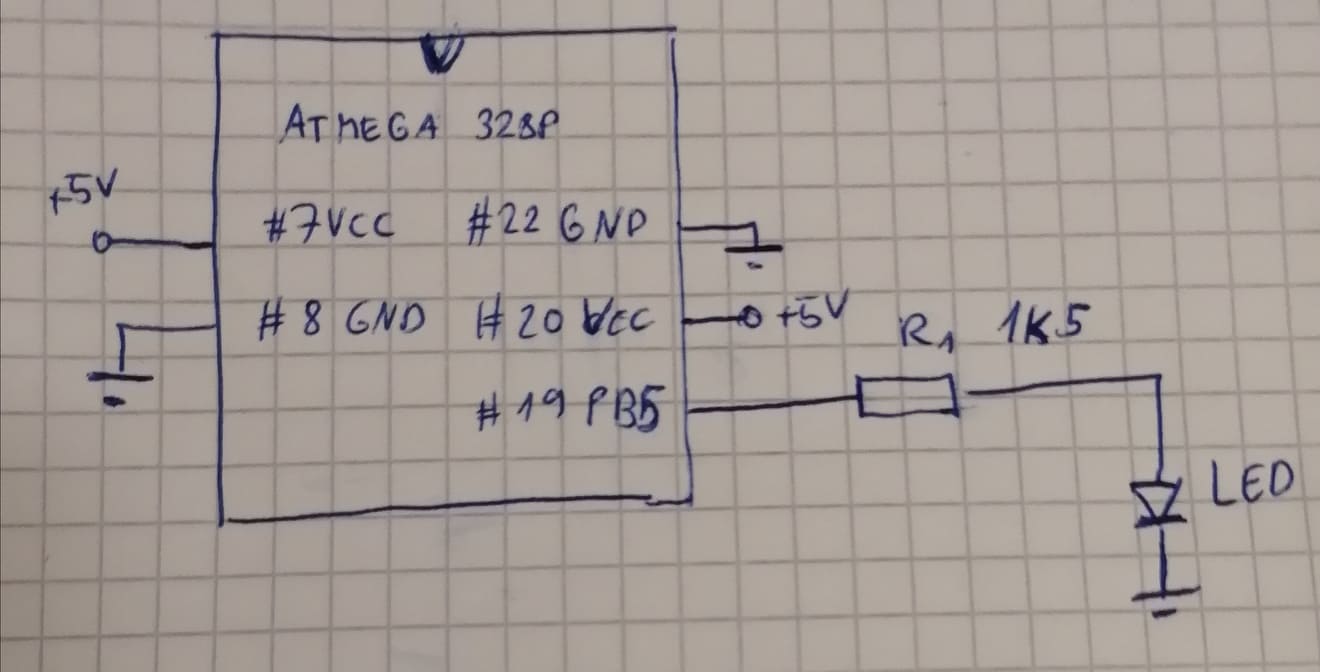 ATMEGA 328P
+5V
#7VCC #22 GND
#8 GND #20 VCC +5V
R1 1K5
#19 PB5
LED